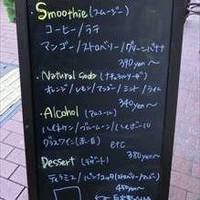 Smoothie (スムージー)
コーヒー / ラテ
マンゴー / ストロベリー / グリーンバナナ
390yen〜
・Natural Soda (ナチュラルソーダ)
オレンジ / レモン / マンゴー / ミント / ライム
340yen〜
・Alcohol (アルコール)
ハイネケン / ブルームーン / ハイボール
グラスワイン (赤・白) etc.
380yen〜
Dessert (デザート)
ティラミス /
450yen〜